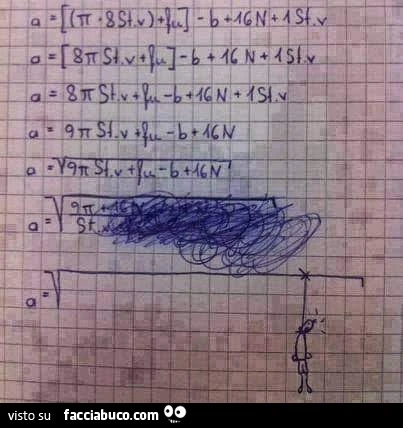 a = [(π · 8St.v) + fu] - b + 16N + 1St.v
a = [8π St.v + fu] - b + 16N + 1St.v
a = 8π St.v + fu - b + 16N + 1St.v
a = 9π St.v + fu - b + 16N
a = √9π St.v + fu - b + 16N
a = √9π + 16
St.
a = √
visto su facciabuco.com